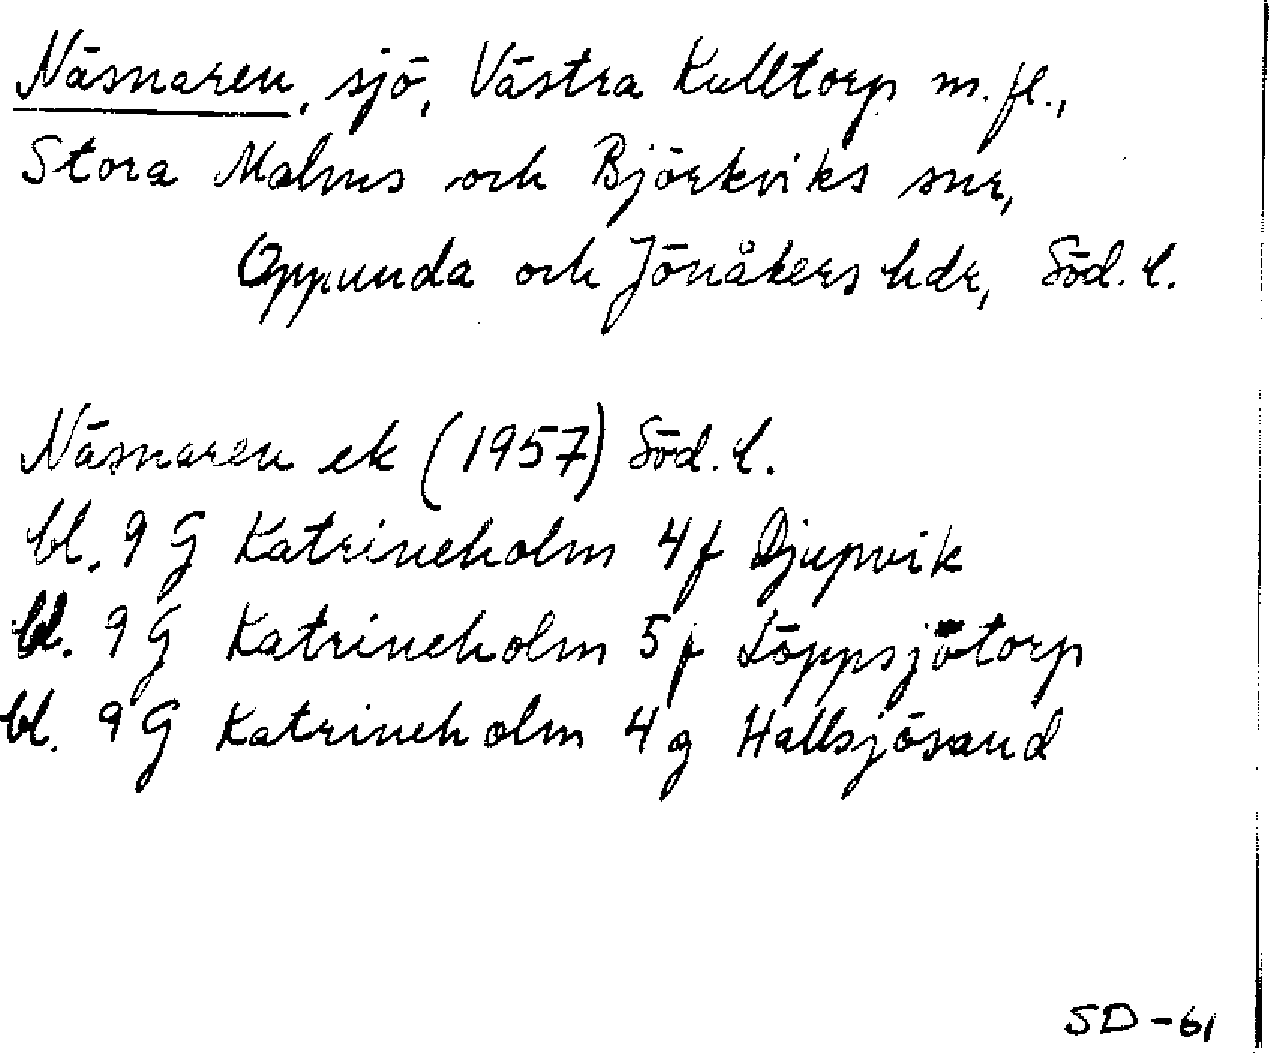 Näsnaren, sjö, Västra Kulltorp m.fl.,
Stora Malms och Björkviks snr,
Oppunda och Jönåkers hdr, Söd. l.
Näsnaren ek (1957) Söd. l.
bl. 9 G Katrineholm 4f Djupvik
bl. 9 G Katrineholm 5f Löppsjötorp
bl. 9 G Katrineholm 4g Hallsjösand
SD-61